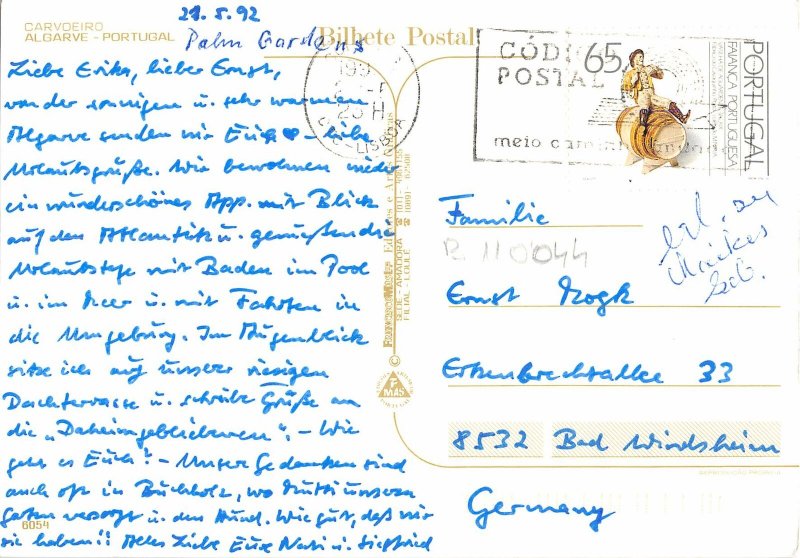 21.5.92
CARVOEIRO
ALGARVE - PORTUGAL
Palm Gardens
Bilhete Postal
Liebe Erika, lieber Ernst,
von der sonnigen u. sehr warmen
Algarve senden wir Euch liebe
Urlaubsgrüße. Wir bewohnen wieder
ein wunderschönes App. mit Blick
auf den Atlantik u. genießen die
Urlaubstage mit Baden im Pool
u. im Meer u. mit Fahrten in
die Umgebung. Im Augenblick
sitze ich auf unserer riesigen
Dachterrasse u. schreibe Grüße an
die „Daheimgebliebenen". - Wie
geht es Euch? - Unsere Gedanken sind
auch oft in Buchholz, wo Mutti unseren
Garten versorgt u. den Hund. Wie gut, daß wir
sie haben!! Alles Liebe Eure Nati u. Siegfried
6054
LISBOA
CÓD
POSTAL
meio
65
PORTUGAL
FAIANÇA PORTUGUESA
SEDE - AMADORA
FILIAL - LOULÉ
©
FMAS
Familie
R 110044
Ernst Mogk
Erkenbrechtallee 33
8532 Bad Windsheim
Germany